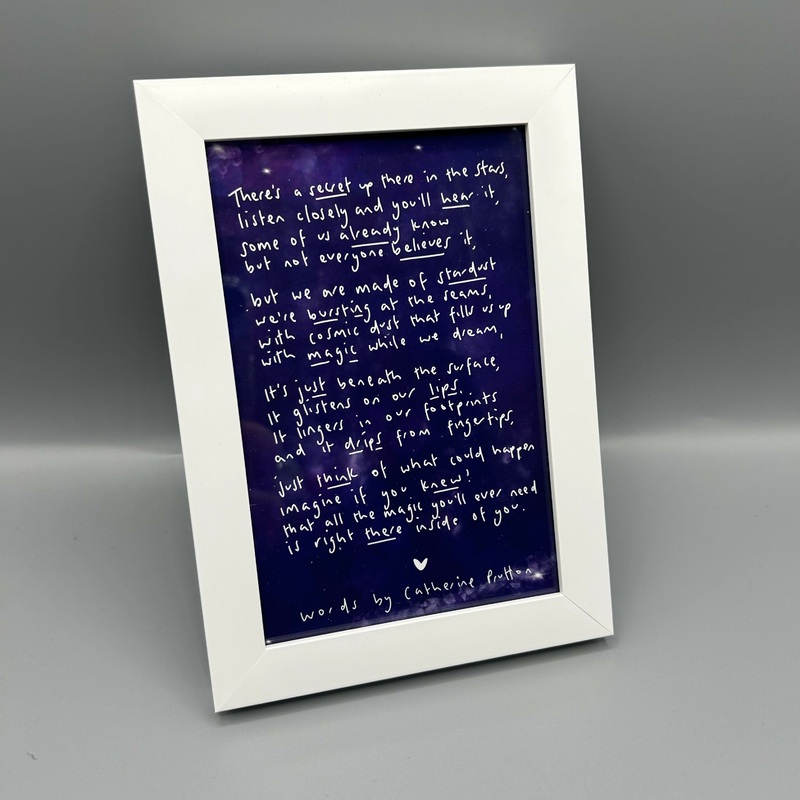 There's a secret up there in the stars,
listen closely and you'll hear it,
some of us already know
but not everyone believes it,
but we are made of stardust
we're bursting at the seams,
with cosmic dust that fills us up
with magic while we dream,
It's just beneath the surface,
It glistens on our lips,
It lingers in our footprints
and it drips from fingertips,
just think of what could happen
imagine if you knew!
that all the magic you'll ever need
is right there inside of you.
words by Catherine Prutton